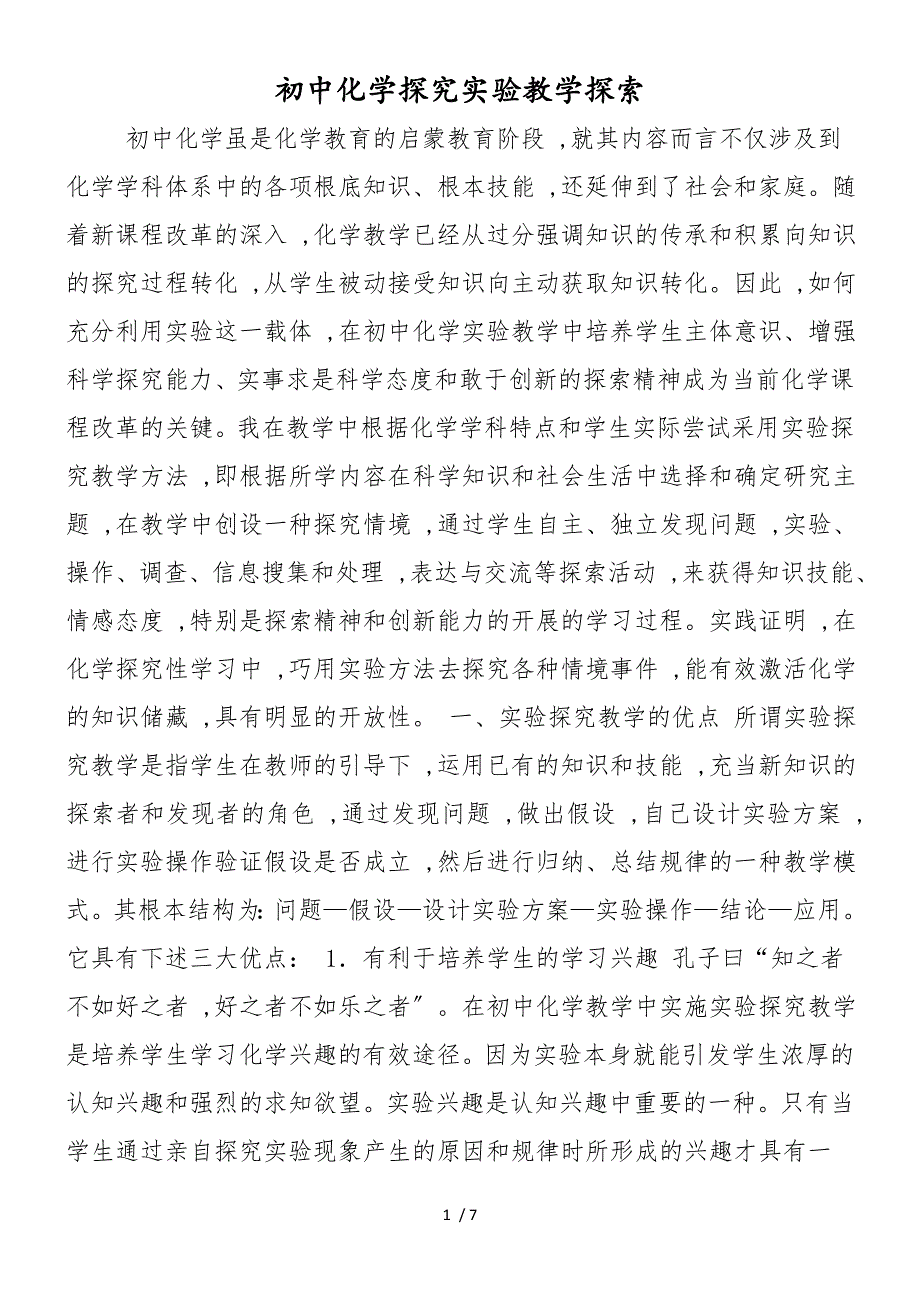 初中化学探究实验教学探索
初中化学虽是化学教育的启蒙教育阶段 ,就其内容而言不仅涉及到
化学学科体系中的各项根底知识、根本技能 ,还延伸到了社会和家庭。随
着新课程改革的深入 ,化学教学已经从过分强调知识的传承和积累向知识
的探究过程转化 ,从学生被动接受知识向主动获取知识转化。因此 ,如何
充分利用实验这一载体 ,在初中化学实验教学中培养学生主体意识、增强
科学探究能力、实事求是科学态度和敢于创新的探索精神成为当前化学课
程改革的关键。我在教学中根据化学学科特点和学生实际尝试采用实验探
究教学方法 ,即根据所学内容在科学知识和社会生活中选择和确定研究主
题 ,在教学中创设一种探究情境 ,通过学生自主、独立发现问题 ,实验、
操作、调查、信息搜集和处理 ,表达与交流等探索活动 ,来获得知识技能、
情感态度 ,特别是探索精神和创新能力的开展的学习过程。实践证明 ,在
化学探究性学习中 ,巧用实验方法去探究各种情境事件 ,能有效激活化学
的知识储藏 ,具有明显的开放性。 一、实验探究教学的优点 所谓实验探
究教学是指学生在教师的引导下 ,运用已有的知识和技能 ,充当新知识的
探索者和发现者的角色 ,通过发现问题 ,做出假设 ,自己设计实验方案 ,
进行实验操作验证假设是否成立 ,然后进行归纳、总结规律的一种教学模
式。其根本结构为:问题—假设—设计实验方案—实验操作—结论—应用。
它具有下述三大优点： 1．有利于培养学生的学习兴趣 孔子曰“知之者
不如好之者 ,好之者不如乐之者〞。在初中化学教学中实施实验探究教学
是培养学生学习化学兴趣的有效途径。因为实验本身就能引发学生浓厚的
认知兴趣和强烈的求知欲望。实验兴趣是认知兴趣中重要的一种。只有当
学生通过亲自探究实验现象产生的原因和规律时所形成的兴趣才具有一
1 / 7